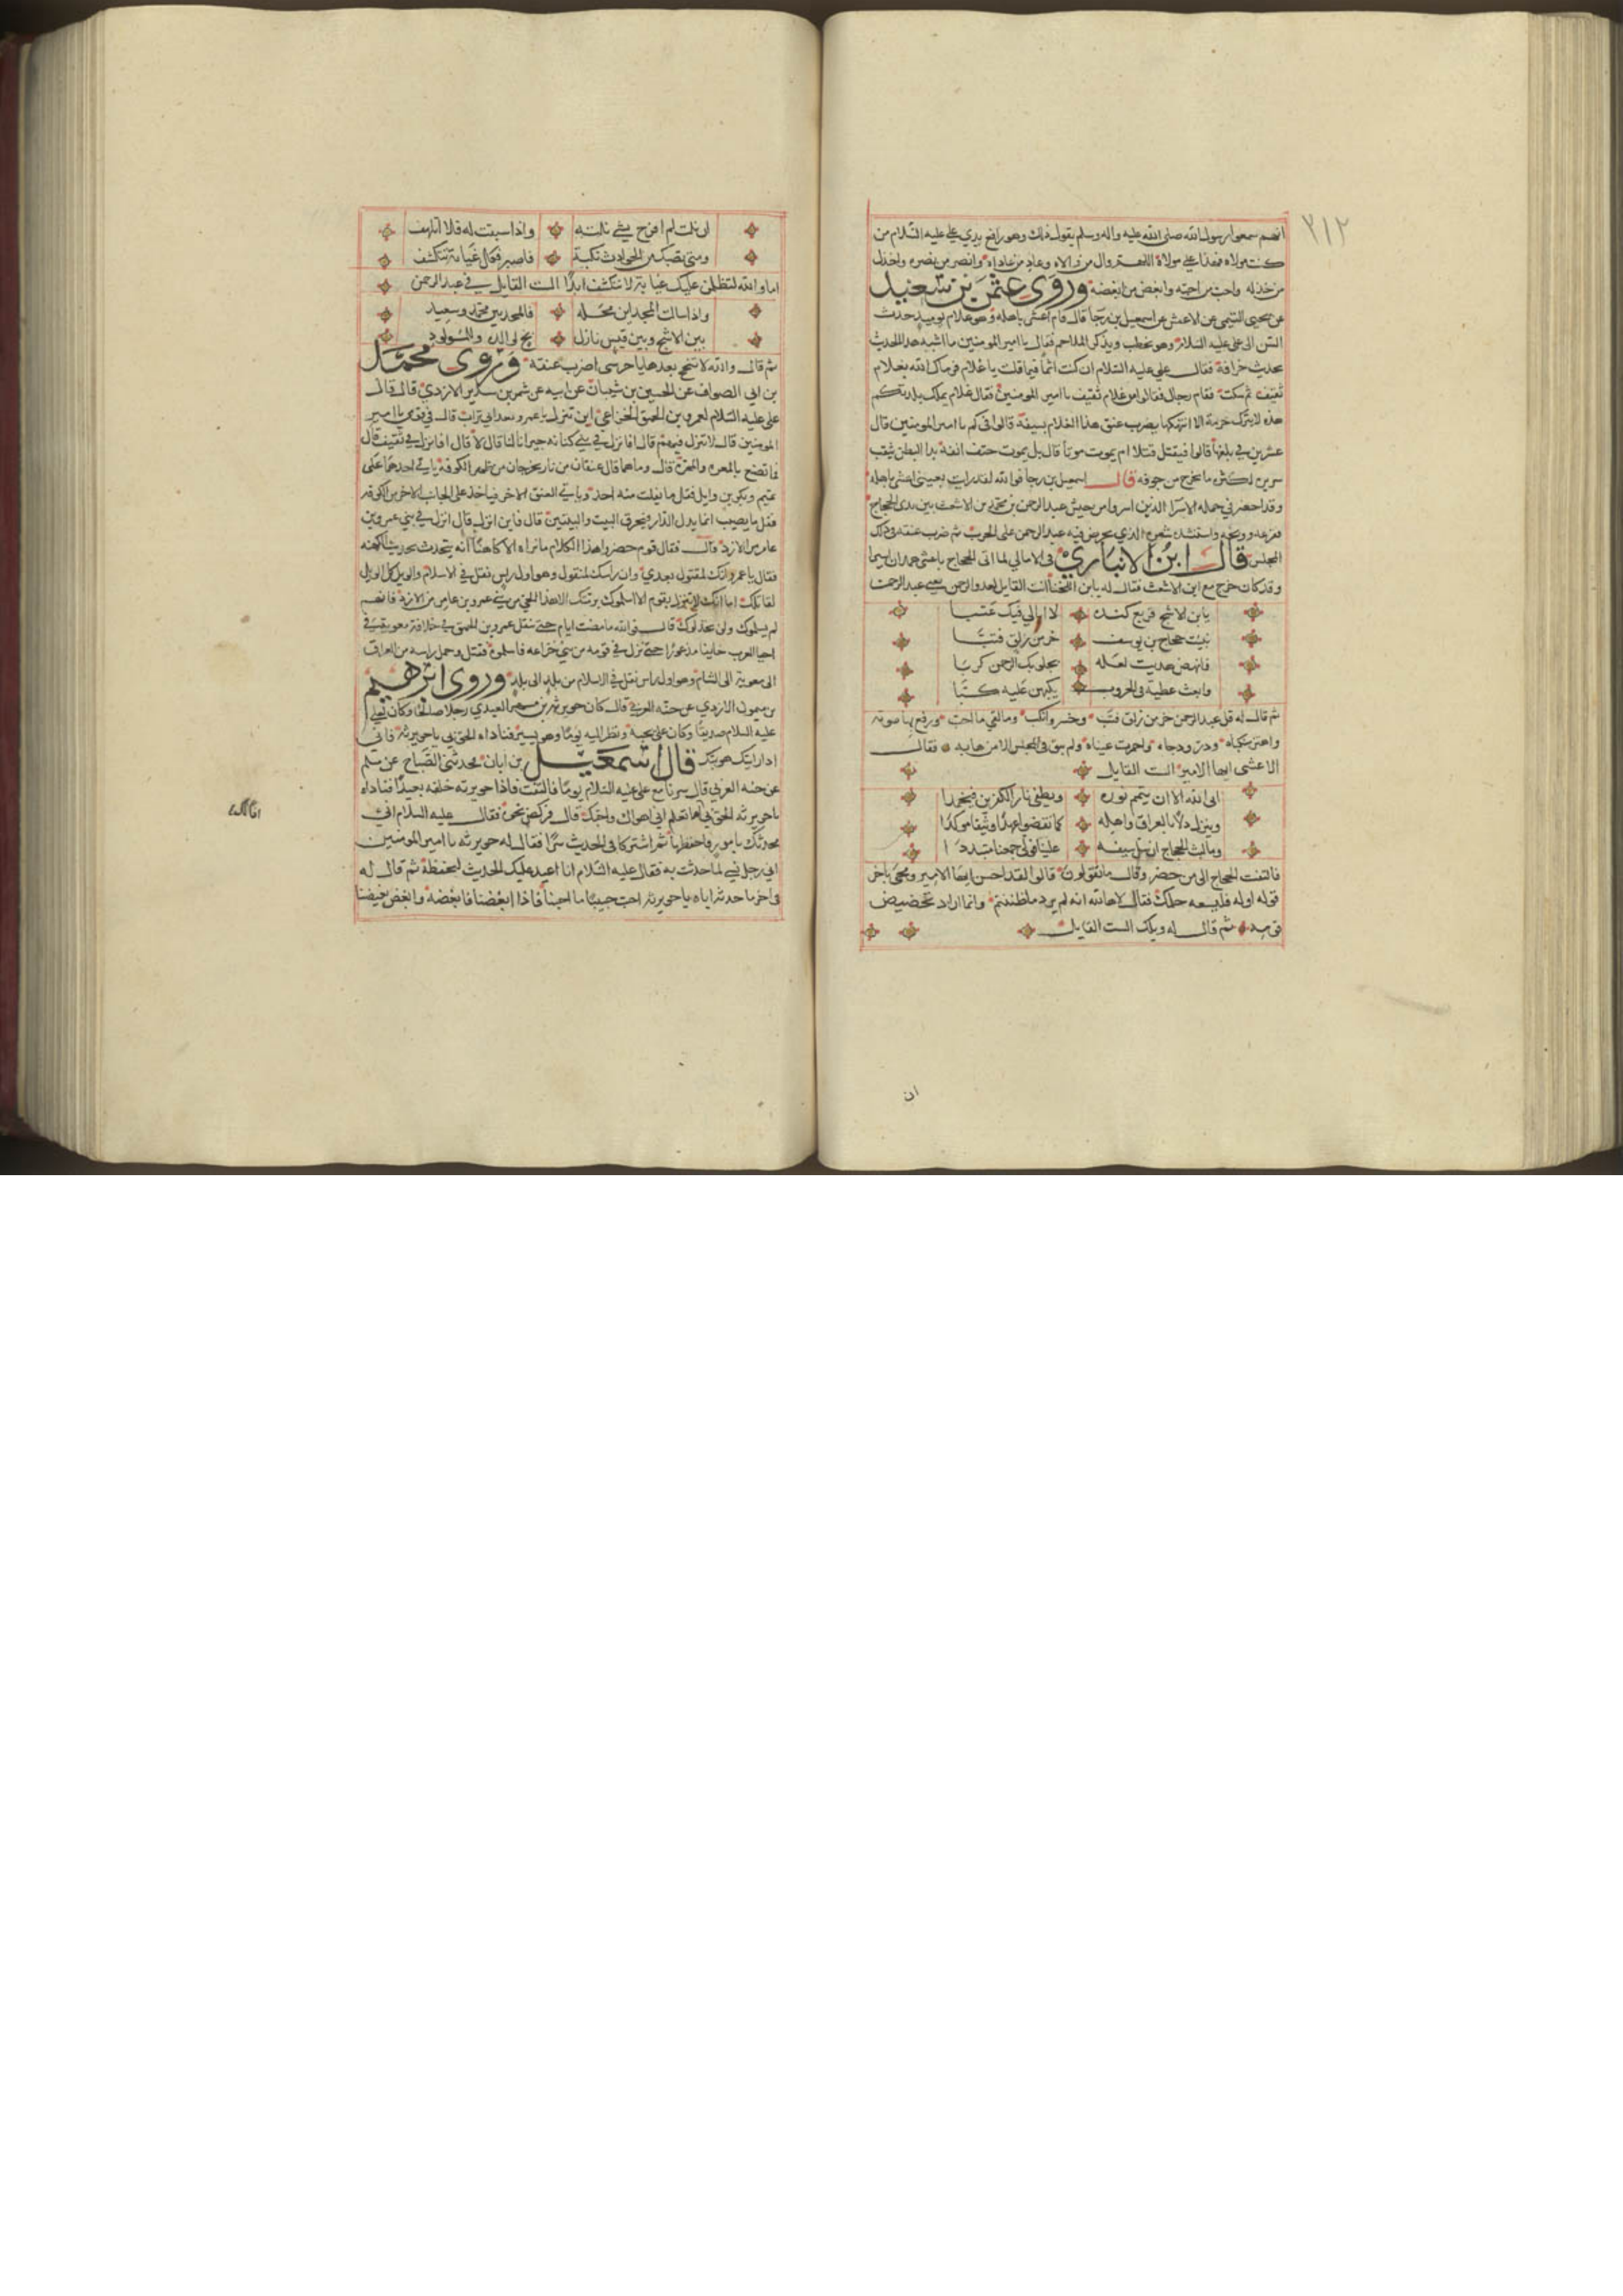 ٢١٢
انهم سمعوا رسول الله صلى الله عليه واله وسلم يقول ذلك وهو رافع بيدي علي عليه السلام من
كنت مولاه فهذا علي مولاه اللهم وال من والاه وعاد من عاداه وانصر من نصره واخذل
من خذله واحب من احبه وابغض من ابغضه وروى عثمن بن سعيد
عن يحيى التيمي عن الاعمش عن اسمعيل بن رجا قال قام اعشى باهله وهو غلام يوميذ حدث
السن الى علي عليه السلام وهو يخطب ويذكر الملاحم فقال يا امير المومنين ما اشبه هذا الحديث
بحديث خرافة فقال علي عليه السلام ان كنت اثما فيما قلت يا غلام فرماك الله بغلام
ثقيف ثم سكت فقام رجال فقالوا من غلام ثقيف يا امير المومنين فقال غلام يملك بلدتكم
هذه لا يترك حرمة الا انتهكها يضرب عنق هذا الغلام بسيفه قالوا كم يا امير المومنين قال
عشرين بلغها قالوا فيقتل قتلا ام يموت موتا قال بل يموت حتف انفه بدا البطن يثقب
سريره لكثرة ما يخرج من جوفه قال اسمعيل بن رجا فوالله لقد رايت بعيني اعشى باهله
وقد احضر في جمله الاسرا الذين اسروا من جيش عبد الرحمن بن محمد بن الاشعث بين يدي الحجاج
فقرعه ووبخه واستنشده شعره الذي يحرض فيه عبد الرحمن على الحرب ثم ضرب عنقه في ذلك
المجلس قال ابن الانباري في الامالي لما اتى الحجاج باعشى همدان اسيرا
وقد كان خرج مع ابن الاشعث فقال له يابن اللخنا انت القايل لعدو الرحمن يعني عبد الرحمن
يابن الاشج قريع كنده لا ابالي فيك عتبا
نبيت حجاج بن يوسف خر من زلق فتبا
فانهض هديت لعله يجلو بك الرحمن كربا
وابعث عطية في الحروب يكبهن عليه كبا
ثم قال له قل عبد الرحمن خر من زلق فتب وخسر وانكب وما لقي ما احب ورفع بها صوته
واهتز منكباه ودر ودجاه واحمرت عيناه ولم يبق في المجلس الا من هابه فقال
الاعشى ايها الامير الست القايل
ابى الله الا ان يتمم نوره ويطفي نار الكفر فيخمدا
وينزل ذلا بالعراق واهله كما نقضوا عهدا وثيقا موكدا
وما لبث الحجاج ان سل سيفه علينا فولى جمعنا متبددا
فالتفت الحجاج الى من حضر وقال ما تقولون قالوا لقد احسن ايها الامير ومحى باخر
قوله اوله فليسعه حلمك فقال لاها الله انه لم يرد ما ظننتم وانما اراد تحضيض
قومه ثم قال له ويلك الست القايل
ان
ان نلت لم افرح بشي نلته واذا سبقت به فلا اتلهف
ومتى تصبك من الحوادث نكبة فاصبر فكل غيابة تتكشف
اما والله لتظلمن عليك غيابة لا تنكشف ابدا الست القايل في عبد الرحمن
واذا سالت المجد اين محله فالمجد بين محمد وسعيد
بين الاشج وبين قيس نازل بخ لوالده وللمولود
ثم قال والله لا تبخبخ بعدها يا حرسي اضرب عنقه وروى محمد
بن ابي الصواف عن الحسين بن شعبان عن ابيه عن شمر بن سدير الازدي قال قال
علي عليه السلام لعمرو بن الحمق الخزاعي اين تنزل يا عمرو قال في قومي يا امير
المومنين قال لا تنزل فيهم قال افانزل في بني كنانه جيراننا قال لا قال افانزل في ثقيف قال
فما تصنع بالمعره والمجره قال وما هما قال عنقان من نار يخرجان من ظهر الكوفة ياتي احدهما على
تميم وبكر بن وايل فقل ما يفلت منه احد وياتي العنق الاخر فياخذ على الجانب الاخر من الكوفة
فقل ما يصيب انما يدخل الدار فيحرق البيت والبيتين قال فاين انزل قال انزل في بني عمرو بن
عامر من الازد قال فقال قوم حضروا هذا الكلام ما نراه الا كاهنا انه يتحدث بحديث الكهنه
فقال يا عمرو انك لمقتول بعدي وان راسك لمنقول وهو اول راس نقل في الاسلام والويل كل الويل
لقاتلك اما انك لا تنزل بقوم الا اسلموك برمتك الا هذا الحي من بني عمرو بن عامر من الازد فانهم
لم يسلموك ولن يخذلوك قال فوالله ما مضت ايام حتى تنقل عمرو بن الحمق في خلافة معوية في
احيا العرب خايفا مذعورا حتى نزل في قومه من بني خزاعه فاسلموه فقتل وحمل راسه من العراق
الى معوية الى الشام وهو اول راس نقل في الاسلام من بلد الى بلد وروى ابرهيم
بن ميمون الازدي عن حبه العرني قال كان جويرية بن مسهر العبدي رجلا صالحا وكان لعلي
عليه السلام صديقا وكان علي يحبه ونظر اليه يوما وهو يسير فناداه الحق بي يا جويرية فاني
اذا رايتك هويتك قال اسمعيل بن ابان فحدثني الصباح عن مسلم
عن حبه العرني قال سرنا مع علي عليه السلام يوما فالتفت فاذا جويرية خلفه بعيدا فناداه
يا جويرية الحق بي اما تعلم اني اهواك واحبك قال فركض نحوه فقال عليه السلام اني
محدثك بامور فاحفظها ثم اشتركا في الحديث سرا فقال له جويرية يا امير المومنين
اني رجل نسي لما حدثت به فقال عليه السلام انا اعيد عليك الحديث لتحفظه ثم قال له
في اخر ما حدثه اياه يا جويرية احبب حبيبنا ما احبنا فاذا ابغضنا فابغضه وابغض بغيضنا